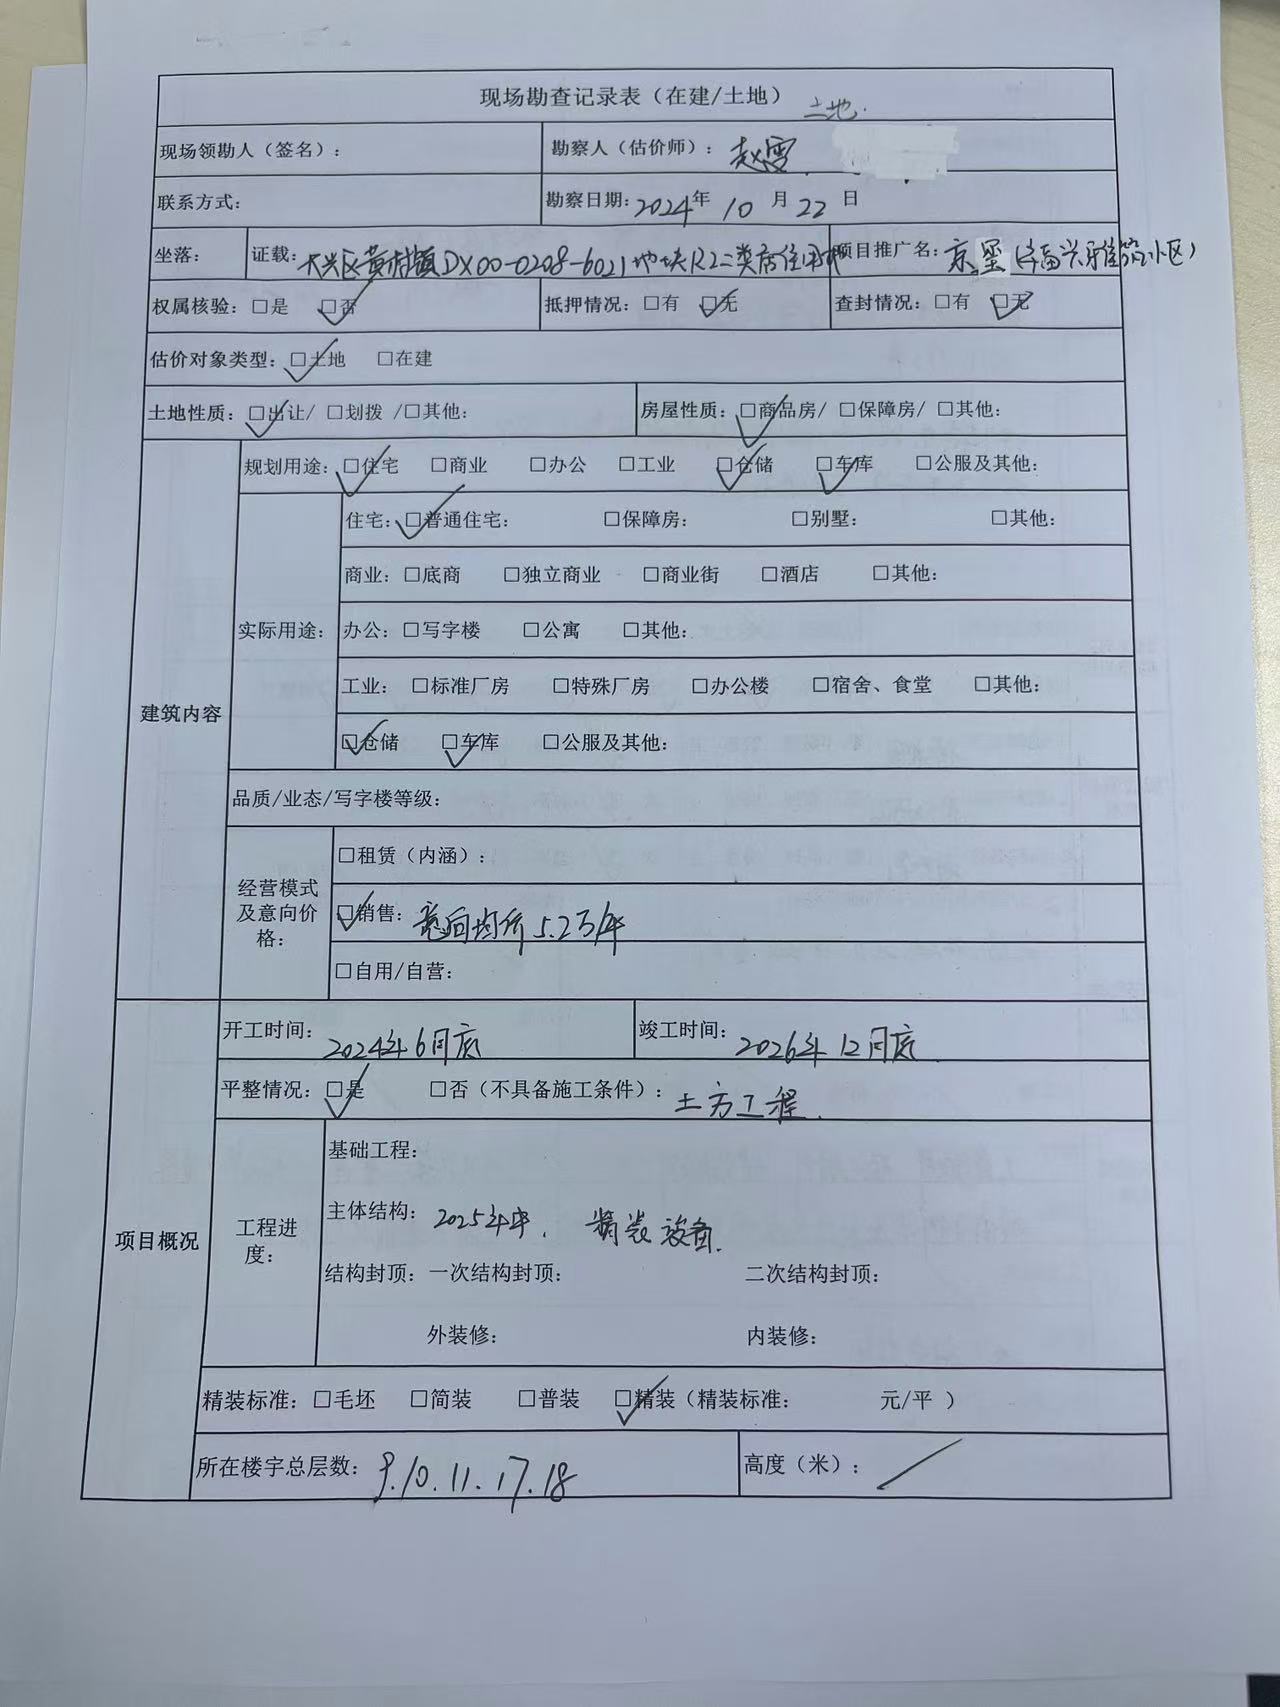 现场勘查记录表（在建/土地） 土地.
现场领勘人（签名）： 勘察人（估价师）：赵雯
联系方式： 勘察日期：2024年 10 月 22 日
坐落： 证载：大兴区黄村镇DX00-0208-6021地块R2二类居住用地 项目推广名：京墨（兴雅小区）
权属核验：□是 ☑否 抵押情况：□有 ☑无 查封情况：□有 ☑无
估价对象类型：☑土地 □在建
土地性质：☑出让/ □划拨 /□其他： 房屋性质：☑商品房/ □保障房/ □其他：
建筑内容
规划用途：☑住宅 □商业 □办公 □工业 ☑仓储 ☑车库 □公服及其他：
实际用途：
住宅：☑普通住宅： □保障房： □别墅： □其他：
商业：□底商 □独立商业 □商业街 □酒店 □其他：
办公：□写字楼 □公寓 □其他：
工业：□标准厂房 □特殊厂房 □办公楼 □宿舍、食堂 □其他：
☑仓储 ☑车库 □公服及其他：
品质/业态/写字楼等级：
经营模式
及意向价
格：
□租赁（内涵）：
☑销售：意向均价5.2万/平
□自用/自营：
项目概况
开工时间：2024年6月底 竣工时间：2026年12月底
平整情况：☑是 □否（不具备施工条件）：土方工程.
工程进
度：
基础工程：
主体结构：2025年中. 精装设备.
结构封顶：一次结构封顶： 二次结构封顶：
外装修： 内装修：
精装标准：□毛坯 □简装 □普装 ☑精装（精装标准： 元/平 ）
所在楼宇总层数：9.10.11.17.18 高度（米）：/